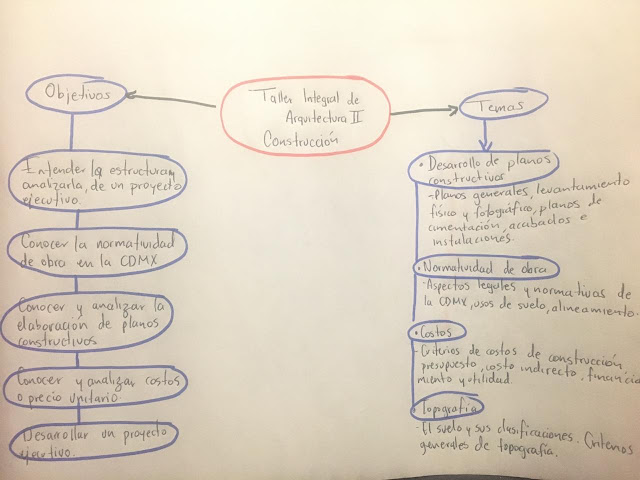 Taller Integral de
Arquitectura II
Construcción
Objetivos
Entender la estructura y
analizarla, de un proyecto
ejecutivo.
Conocer la normatividad
de obra en la CDMX
Conocer y analizar la
elaboración de planos
constructivos
Conocer y analizar costos
o precio unitario.
Desarrollar un proyecto
ejecutivo.
Temas
• Desarrollo de planos
constructivos
-Planos generales, levantamiento
físico y fotográfico, planos de
cimentación, acabados e
instalaciones.
• Normatividad de obra
-Aspectos legales y normativas de
la CDMX, usos de suelo, alineamiento.
• Costos
-Criterios de costos de construcción,
presupuesto, costo indirecto, financia
miento y utilidad.
• Topografía
-El suelo y sus clasificaciones. Criterios
generales de topografía.